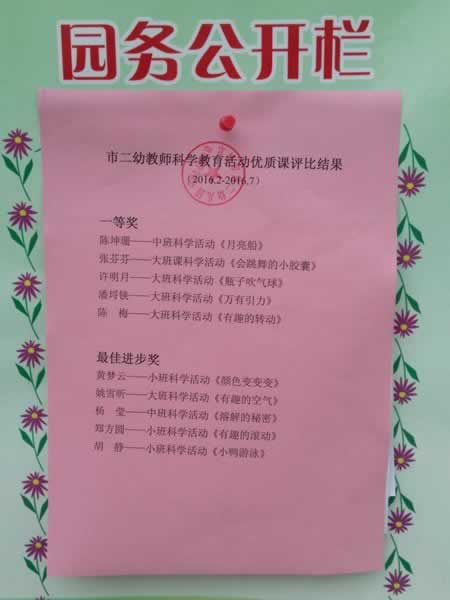 园务公开栏
市二幼教师科学教育活动优质课评比结果
（2016.2-2016.7）
一等奖
陈坤珊——中班科学活动《月亮船》
张芬芬——大班课科学活动《会跳舞的小胶囊》
许明月——大班科学活动《瓶子吹气球》
潘埒铗——大班科学活动《万有引力》
陈 梅——大班科学活动《有趣的转动》
最佳进步奖
黄梦云——小班科学活动《颜色变变变》
姚雪昕——大班科学活动《有趣的空气》
杨 莹——中班科学活动《溶解的秘密》
郑方圆——小班科学活动《有趣的滚动》
胡 静——小班科学活动《小鸭游泳》